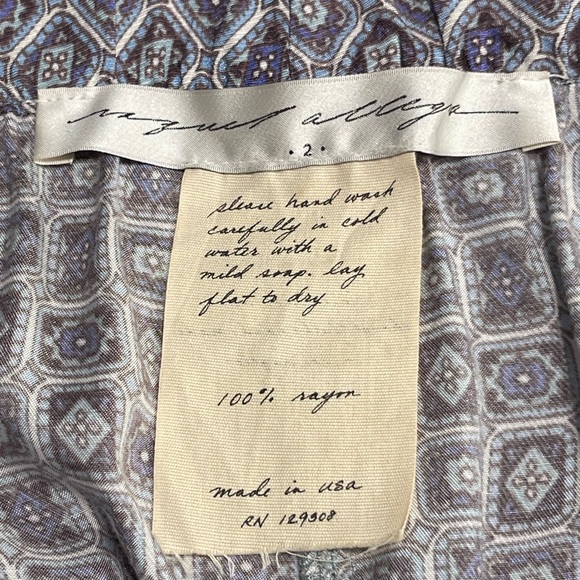 raquel allegra
• 2 •
please hand wash
carefully in cold
water with a
mild soap. lay
flat to dry
100% rayon
made in usa
RN 129308